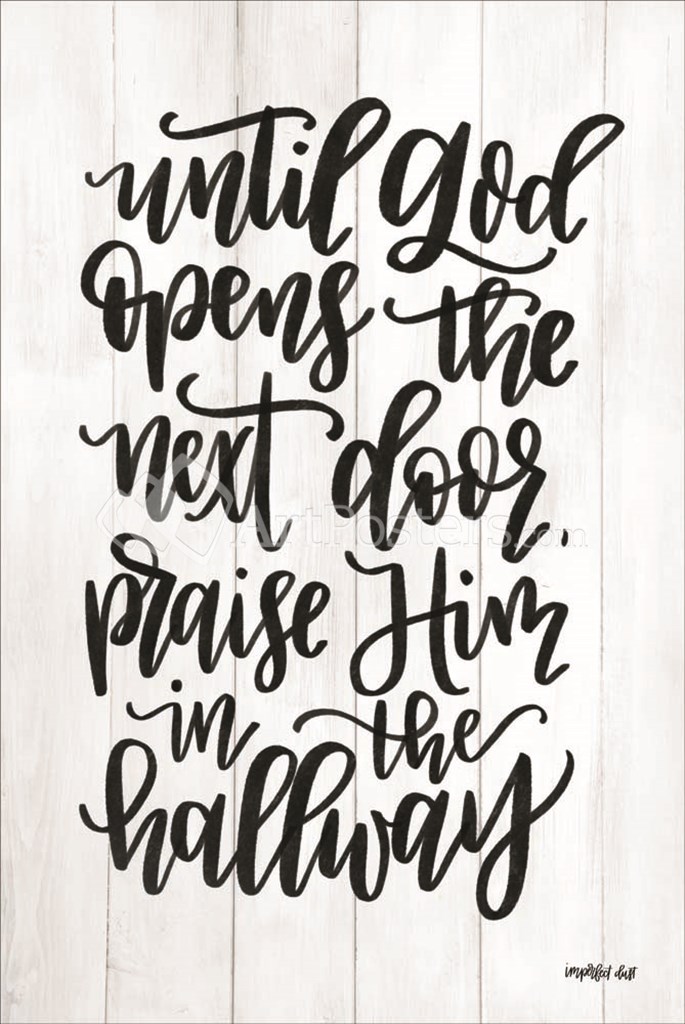 until God
opens the
next door.
praise Him
in the
hallway
ArtPosters.com
imperfect dust